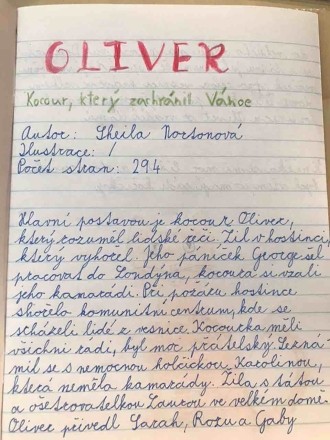 OLIVER
Kocour, který zachránil Vánoce
Autor: Sheila Nortonová
Ilustrace: /
Počet stran: 294
Hlavní postavou je kocour Oliver,
který rozuměl lidské řeči. Žil v hostinci,
který vyhořel. Jeho páníček George šel
pracovat do Londýna, kocoura si vzali
jeho kamarádi. Při požáru hostince
shořelo komunitní centrum, kde se
scházeli lidé z vesnice. Kocourka měli
všichni rádi, byl moc přátelský. Sezná-
mil se s nemocnou holčičkou Karolínou,
která neměla kamarády. Žila s tátou
a ošetrovatelkou Laurou ve velkém domě.
Oliver přivedl Sarah, Rosu a Gaby